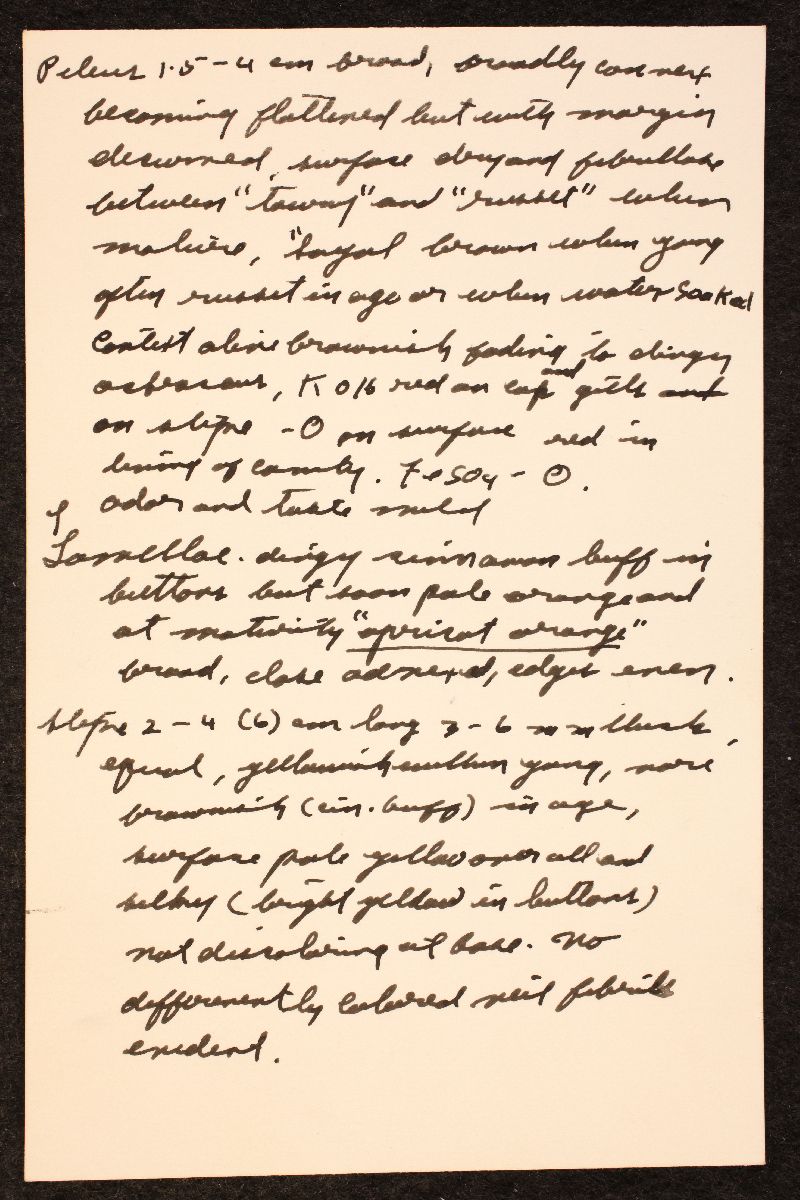 Pileus 1.5-4 cm broad, broadly convex
becoming flattened but with margin
decurved, surface dry and fibrillose
between "tawny" and "russet" when
mature, "sayal brown when young
often russet in age or when water soaked
Context olive brownish fading to dingy
, KOH red on cap and gills and
on stipe -O on surface red in
lining of cavity. FeSO4 - O.
odor and taste mild
Lamellae. dingy cinnamon buff in
buttons but soon pale orange and
at maturity "apricot orange"
broad, close adnexed, edges even.
stipe 2-4 (6) cm long 3-6 mm thick,
equal, yellowish within young, more
brownish (cin. buff) in age,
surface pale yellow over all and
silky (bright yellow in buttons)
not discoloring at base. No
differently colored veil fibrils
evident.